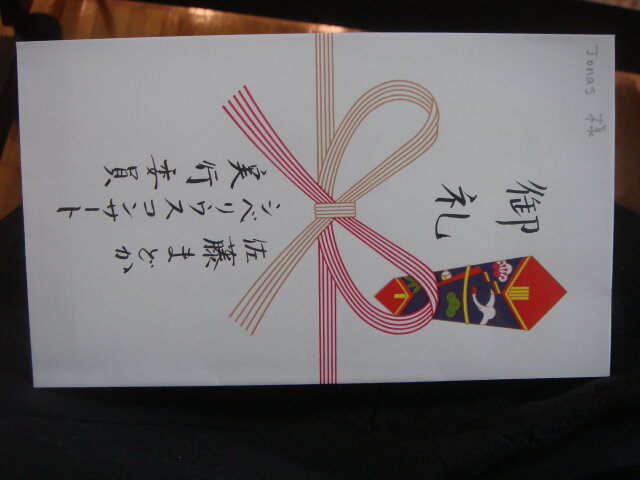 Jonas 様
御礼
佐藤まどか
シベリウスコンサート
実行委員